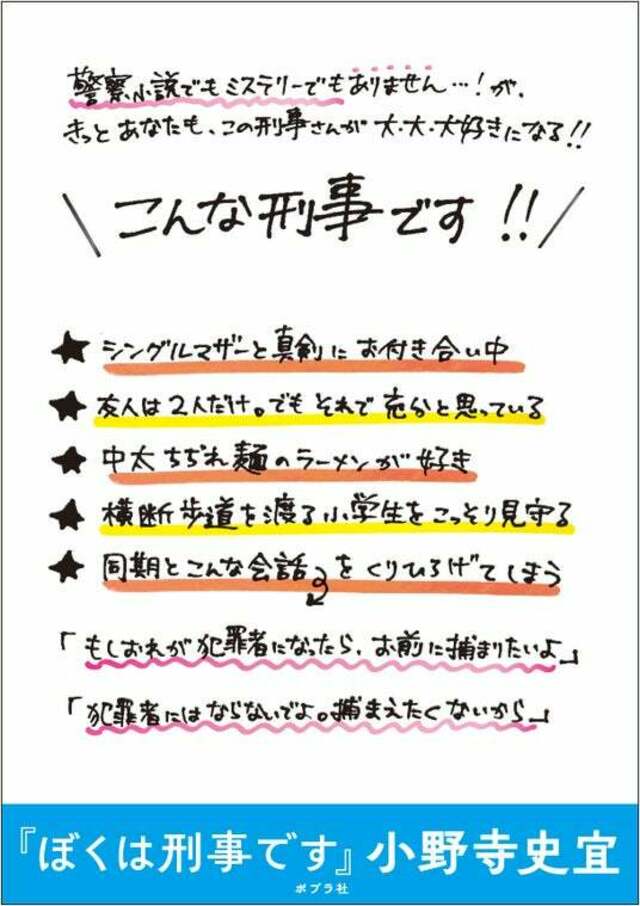 警察小説でもミステリーでもありません…!が、
きっとあなたも、この刑事さんが大・大・大好きになる!!
\こんな刑事です!!/
★シングルマザーと真剣にお付き合い中
★友人は2人だけ。でもそれで充分と思っている
★中太ちぢれ麺のラーメンが好き
★横断歩道を渡る小学生をこっそり見守る
★同期とこんな会話をくりひろげてしまう
「もしおれが犯罪者になったら、お前に捕まりたいよ」
「犯罪者にはならないでよ。捕まえたくないから」
『ぼくは刑事です』小野寺史宜
ポプラ社